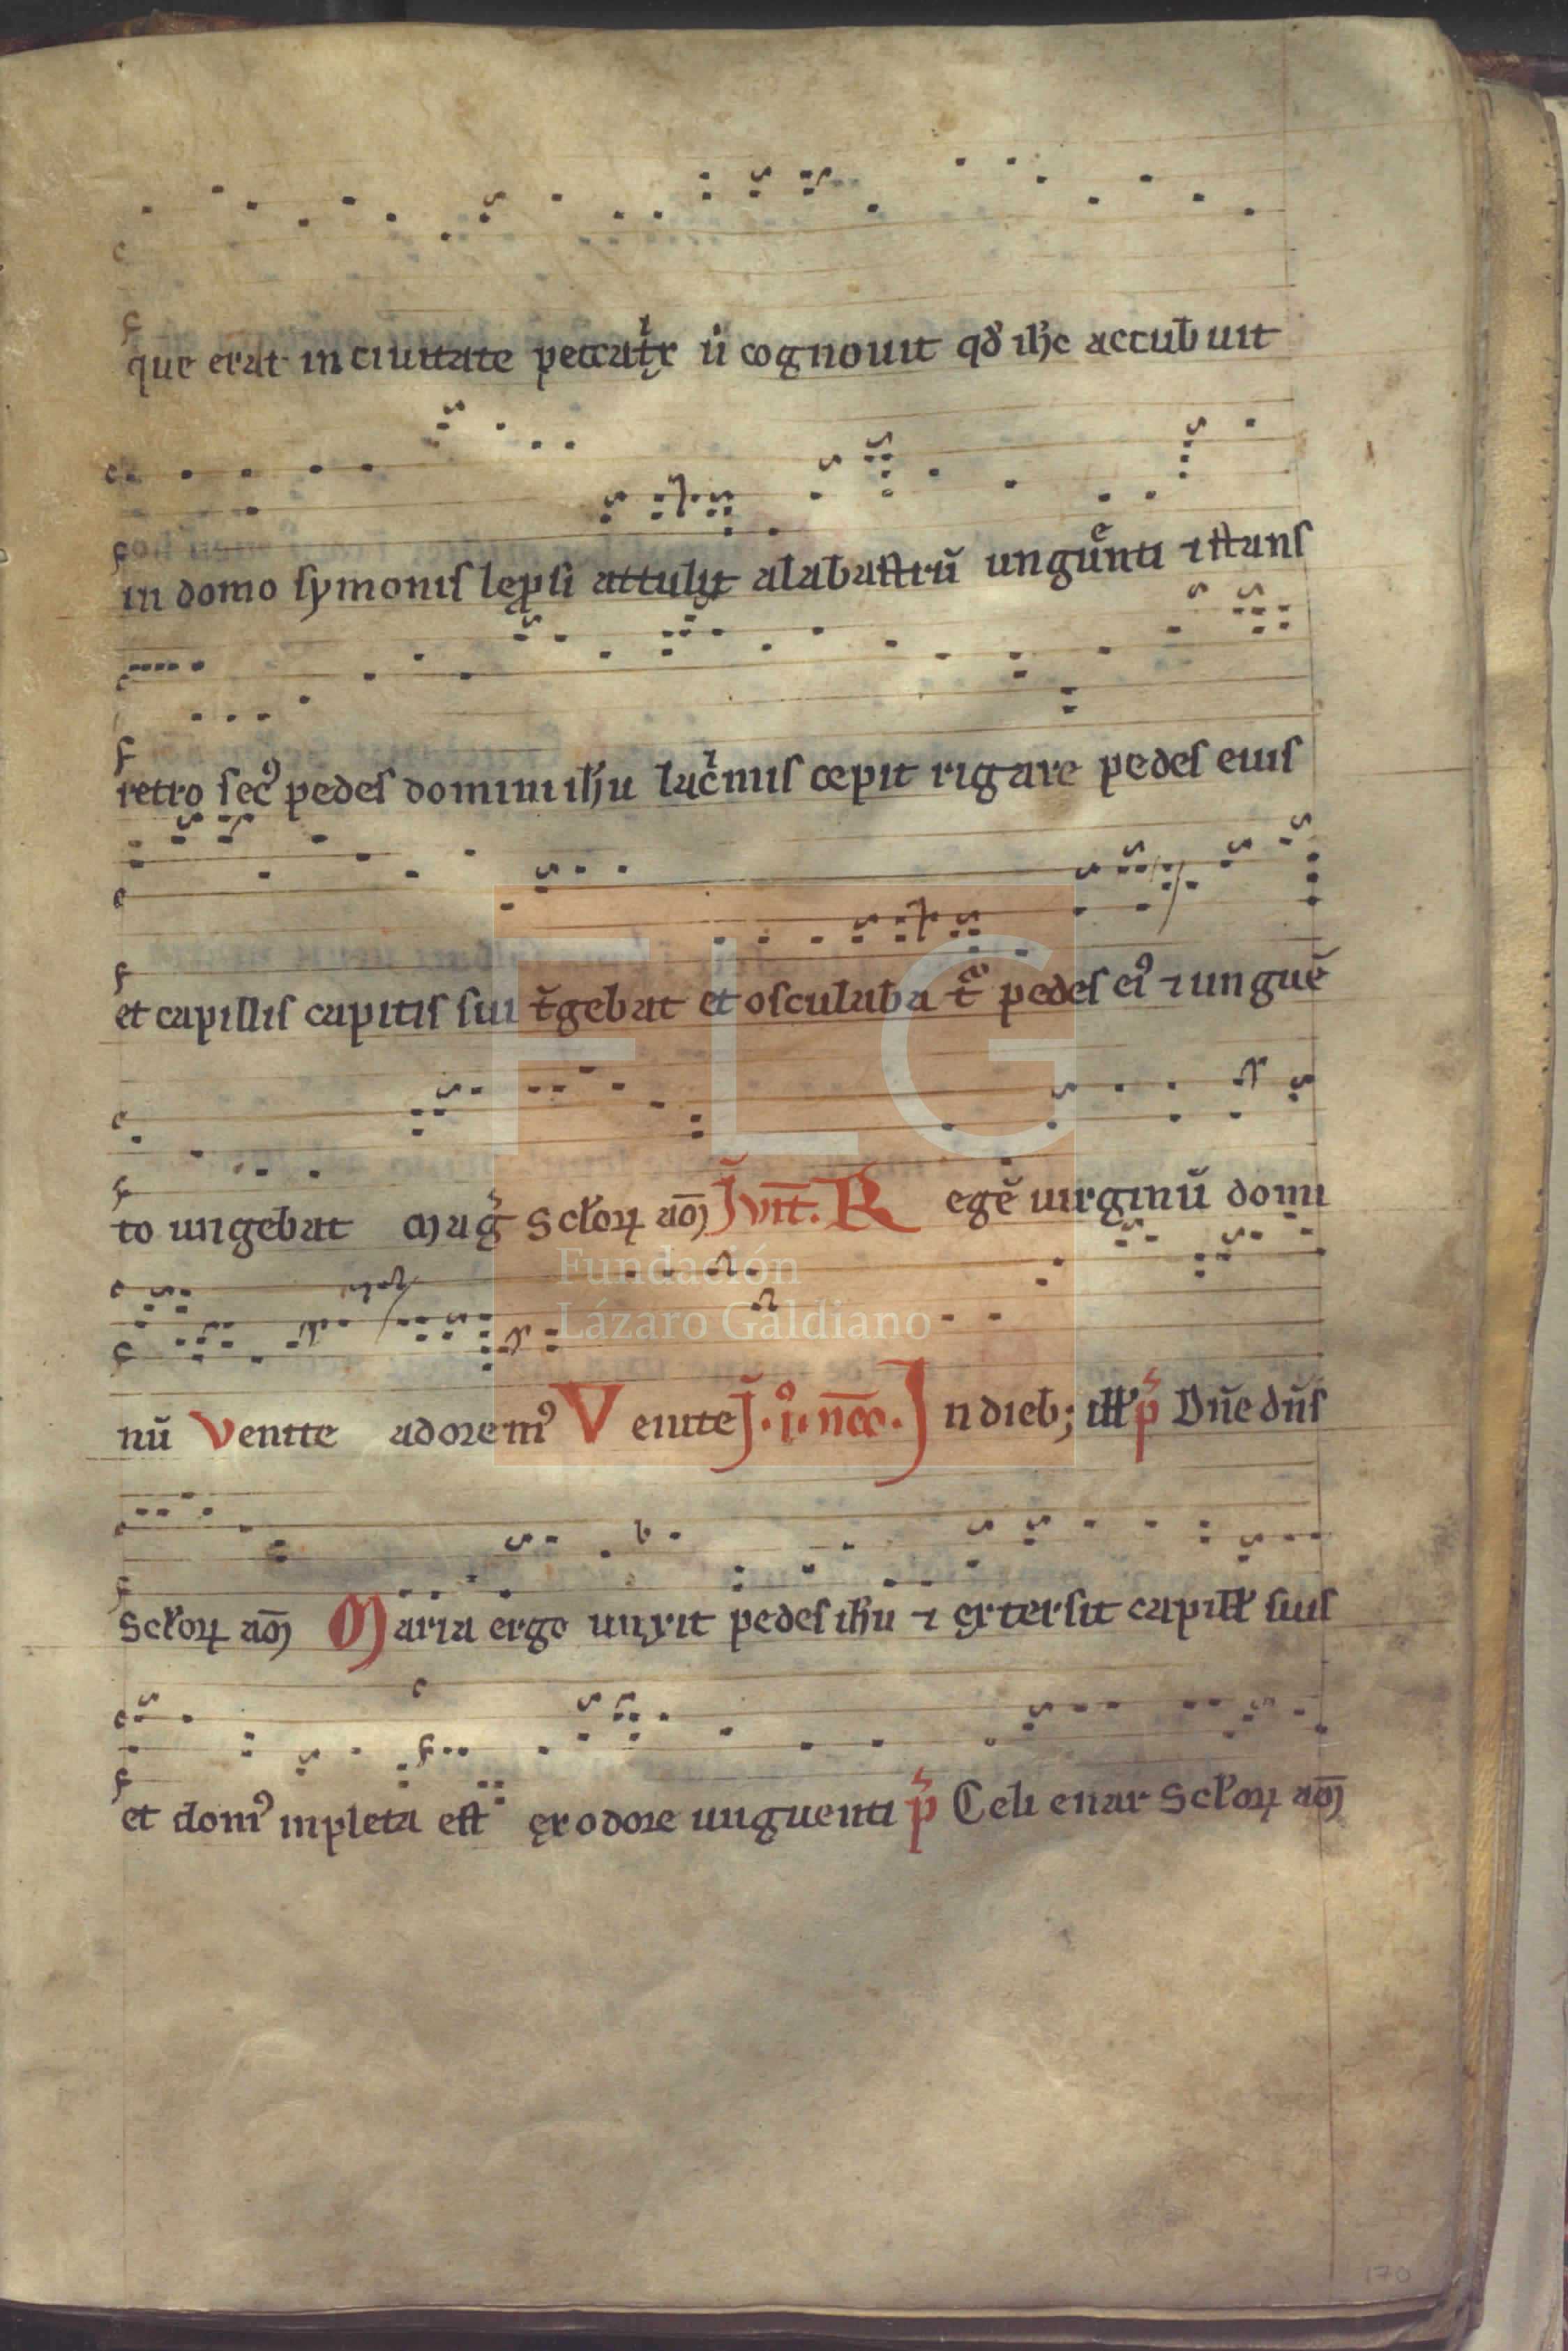 que erat in ciuitate peccatͥx ut cognouit qđ ihc accubuit
in domo symonis leprosi attulit alabastrũ unguͤnti ⁊ stans
retro secꝰ pedes domini ihu lacͥmis cepit rigare pedes eius
et capillis capitis sui t̃gebat et osculabat pedes eiꝰ ⁊ unguẽ
to ungebat Mag̃ Scloꝝ aō J̃vit̄. Regẽ uirginũ domi
nũ Venite adoremꝰ Venite J̃. i. n̄cc. In dieb; ill p̃ Dñe dñs
Scloꝝ aō Maria ergo unxit pedes ihu ⁊ extersit capill suis
et domꝰ inpleta est ex odore unguenti p̃ Celi enar Scloꝝ aō
FLG
Fundación
Lázaro Galdiano
170